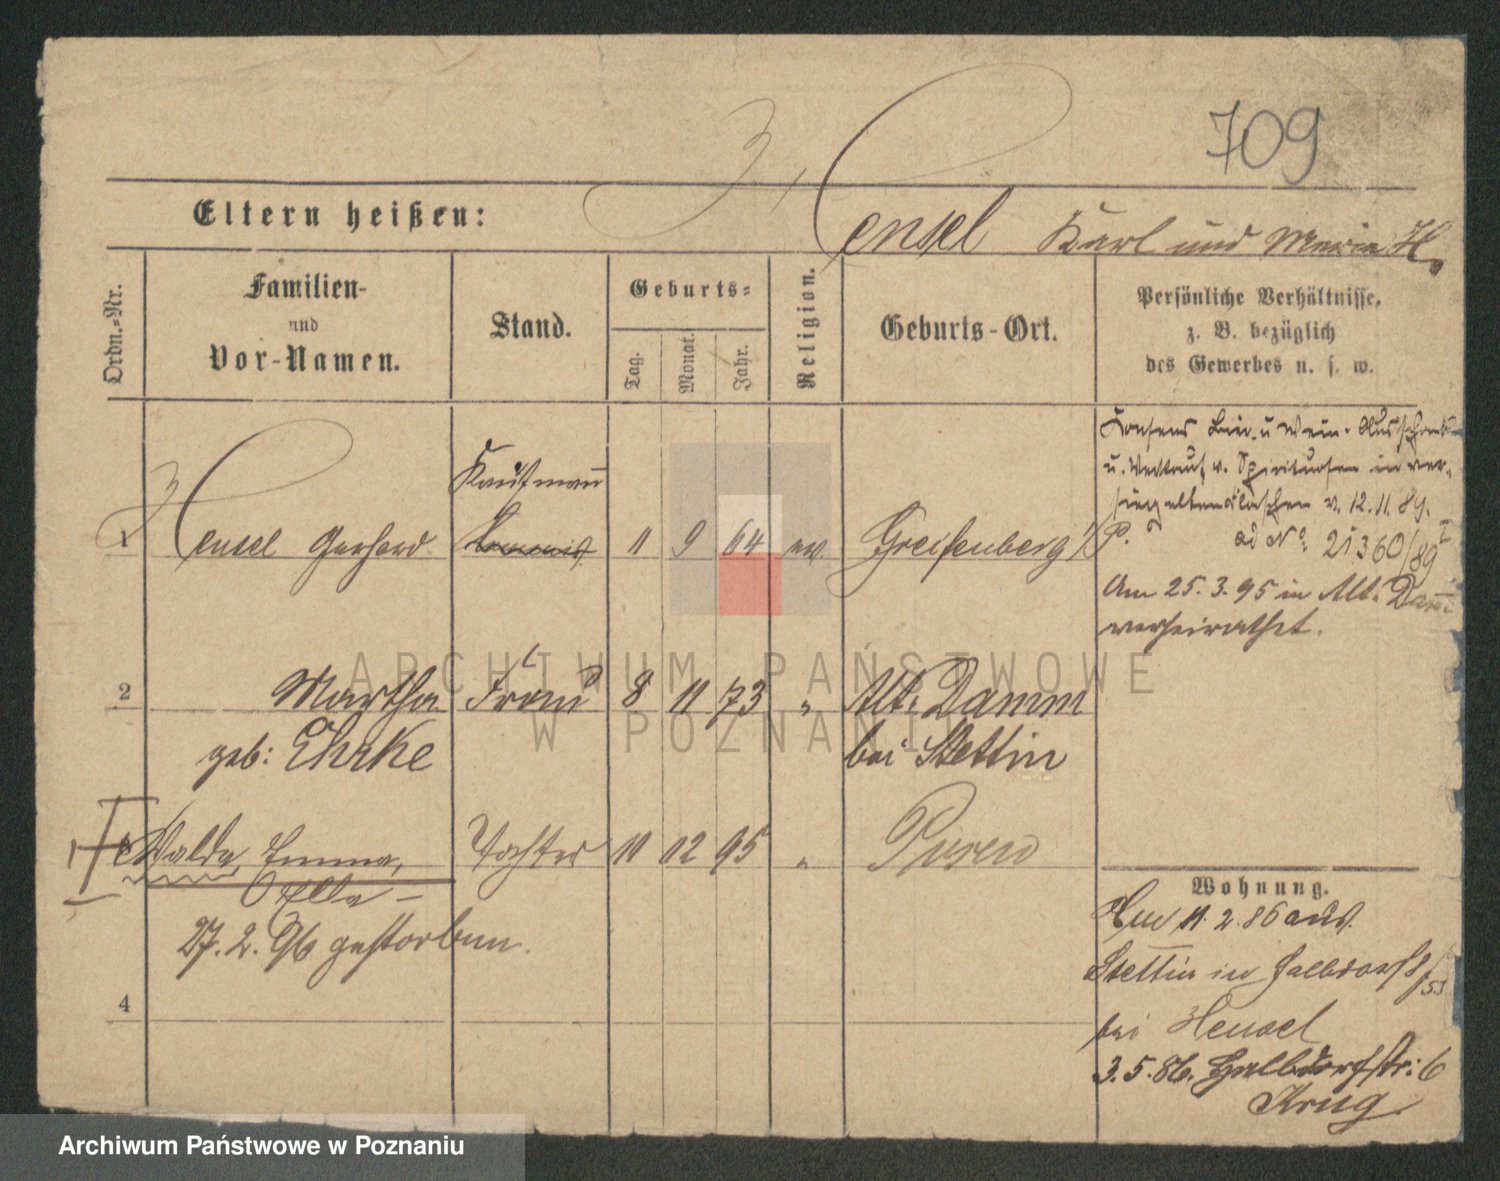 709
Eltern heißen:
Hensel Karl und Maria H.
Ordn.-Nr.
Familien-
und
Vor-Namen.
Stand.
Geburts-
Tag.
Monat.
Jahr.
Religion.
Geburts-Ort.
Persönliche Verhältnisse,
z. B. bezüglich
des Gewerbes u. s. w.
Konsens Bier- u Wein- Ausschank
u. Verkauf v. Spirituosen in ver-
siegelten Flaschen v. 12.11.89.
ad No 21360/89 I
Am 25.3.95 in Alt. Damm
verheirathet.
Kaufmann
1 Hensel Gerhard 11 9 64 ev. Greifenberg i/P.
2 Martha Frau 8 11 73 " Alt. Damm
geb: Ehrke bei Stettin
Walda, Emma, Tochter 10 12 95 " Posen
Ella
27.2.96 gestorben.
4
Wohnung.
11.2.86 aus
Stettin in Halbdorfs
bei Hensel
3.5.86. Halbdorfstr: 6
Krug
ARCHIWUM PAŃSTWOWE
W POZNANIU
Archiwum Państwowe w Poznaniu